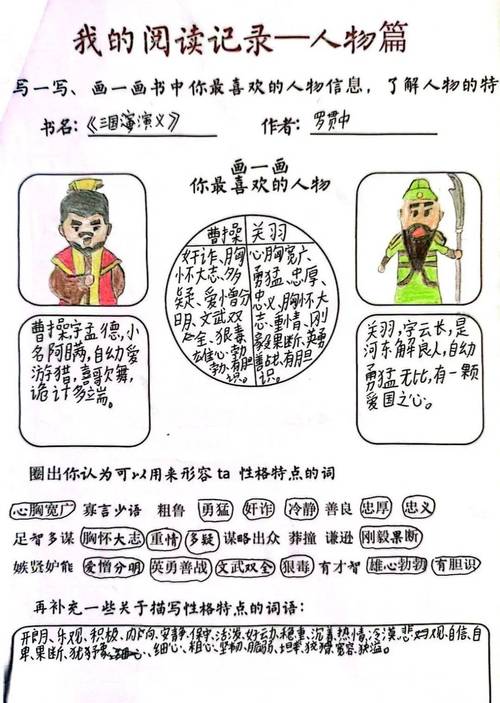 我的阅读记录—人物篇
写一写、画一画书中你最喜欢的人物信息，了解人物的特
书名：《三国演义》 作者：罗贯中
画一画
你最喜欢的人物
曹操 关羽
奸诈、胸
怀大志、多
疑、爱憎分
明、文武双
全、狠毒
雄心勃
勃、有胆识。
心胸宽广、
勇猛、忠厚、
忠义、胸怀大
志、重情、刚
毅果断、英勇
善战、有胆
识。
曹操字孟德，小
名阿瞒，自幼爱
游猎，喜歌舞，
诡计多端。
关羽，字云长，是
河东解良人，自幼
勇猛无比，有一颗
爱国之心。
圈出你认为可以用来形容 ta 性格特点的词
心胸宽广 寡言少语 粗鲁 勇猛 奸诈 冷静 善良 忠厚 忠义
足智多谋 胸怀大志 重情 多疑 谋略出众 莽撞 谦逊 刚毅果断
嫉贤妒能 爱憎分明 英勇善战 文武双全 狠毒 有才智 雄心勃勃 有胆识
再补充一些关于描写性格特点的词语：
开朗、乐观、积极、内向、安静、保守、活泼、好动、稳重、沉着、热情、冷漠、悲观、自信、自
卑、果断、犹豫、细心、粗心、坚韧、脆弱、坦率、狡猾、宽容、狭隘。